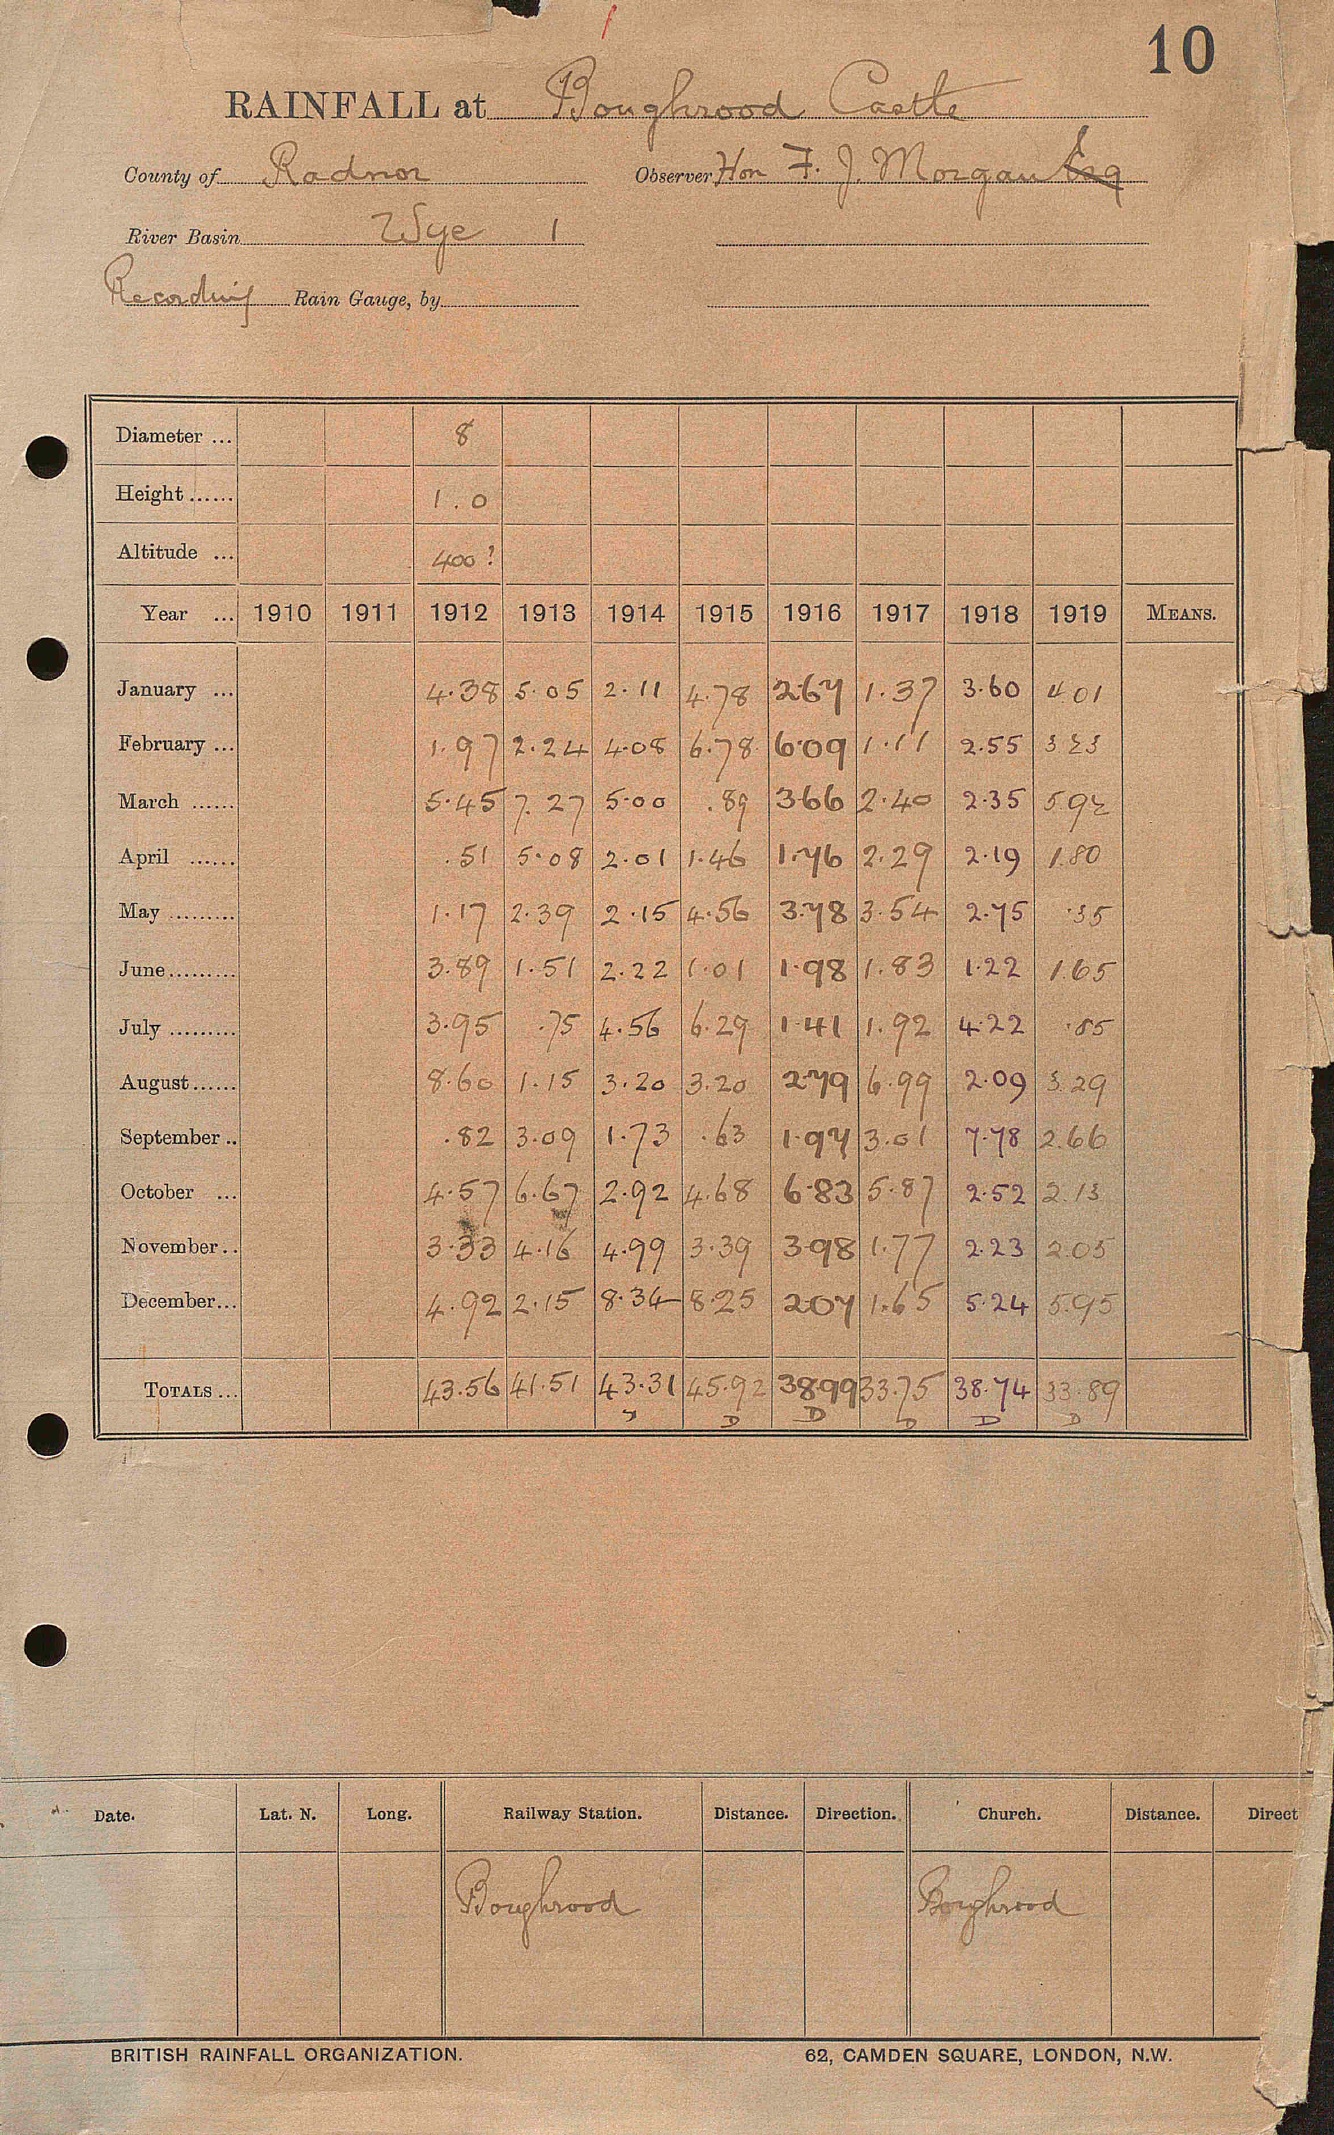 10
RAINFALL at Boughrood Castle
County of Radnor Observer Hon F. J. Morgan Esq
River Basin Wye 1
Recording Rain Gauge, by
Diameter ... 8
Height ...... 1.0
Altitude ... 400?
Year ... 1910 1911 1912 1913 1914 1915 1916 1917 1918 1919 MEANS.
January ... 4.38 5.05 2.11 4.78 2.67 1.37 3.60 4.01
February ... 1.97 2.24 4.08 6.78 6.09 1.11 2.55 3.23
March ...... 5.45 7.27 5.00 .89 3.66 2.40 2.35 5.92
April ...... .51 5.08 2.01 1.46 1.76 2.29 2.19 1.80
May ......... 1.17 2.39 2.15 4.56 3.78 3.54 2.75 .35
June......... 3.89 1.51 2.22 1.01 1.98 1.83 1.22 1.65
July ......... 3.95 .75 4.56 6.29 1.41 1.92 4.22 .85
August...... 8.60 1.15 3.20 3.20 2.79 6.99 2.09 3.29
September .. .82 3.09 1.73 .63 1.97 3.01 7.78 2.66
October ... 4.57 6.67 2.92 4.68 6.83 5.87 2.52 2.13
November.. 3.33 4.16 4.99 3.39 3.98 1.77 2.23 2.05
December... 4.92 2.15 8.34 8.25 2.07 1.65 5.24 5.95
TOTALS ... 43.56 41.51 43.31 45.92 38.99 33.75 38.74 33.89
D D D D D
Date. Lat. N. Long. Railway Station. Distance. Direction. Church. Distance. Direct
Boughrood Boughrood
BRITISH RAINFALL ORGANIZATION. 62, CAMDEN SQUARE, LONDON, N.W.